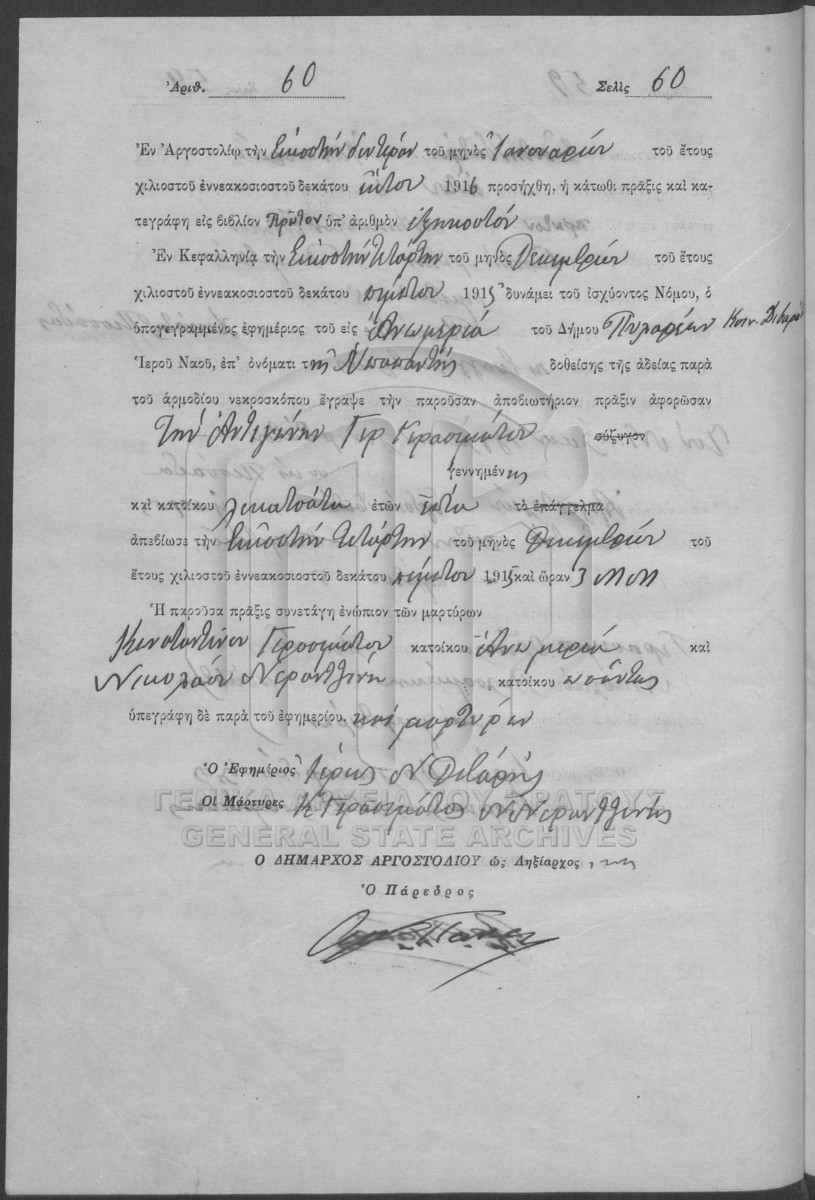 Ἀριθ. 60 Σελὶς 60
Ἐν Ἀργοστολίῳ τὴν Εἰκοστὴν δευτέραν τοῦ μηνὸς Ἰανουαρίου τοῦ ἔτους
χιλιοστοῦ ἐννεακοσιοστοῦ δεκάτου ἕκτου 1916 προσήχθη, ἡ κάτωθι πρᾶξις καὶ κα-
τεγράφη εἰς βιβλίον πρῶτον ὑπ' ἀριθμὸν ἑξηκοστόν
Ἐν Κεφαλληνίᾳ τὴν Εἰκοστὴν τετάρτην τοῦ μηνὸς Δεκεμβρίου τοῦ ἔτους
χιλιοστοῦ ἐννεακοσιοστοῦ δεκάτου πέμπτου 1915 δυνάμει τοῦ ἰσχύοντος Νόμου, ὁ
ὑπογεγραμμένος ἐφημέριος τοῦ εἰς Ἀνωμεριά τοῦ Δήμου Πυλαρέων Κοιν.
Ἱεροῦ Ναοῦ, ἐπ' ὀνόματι τῆς Ὑπαπαντῆς δοθείσης τῆς ἀδείας παρὰ
τοῦ ἁρμοδίου νεκροσκόπου ἔγραψε τὴν παροῦσαν ἀποβιωτήριον πρᾶξιν ἀφορῶσαν
Τὴν Ἀντιγόνην Γερ Γερασιμάτου σύζυγον
γεννημένης
καὶ κατοίκου ἐτῶν ἑπτά τὸ ἐπάγγελμα
ἀπεβίωσε τὴν Εἰκοστὴν τετάρτην τοῦ μηνὸς Δεκεμβρίου τοῦ
ἔτους χιλιοστοῦ ἐννεακοσιοστοῦ δεκάτου πέμπτου 1915 καὶ ὥραν 3
Ἡ παροῦσα πρᾶξις συνετάγη ἐνώπιον τῶν μαρτύρων
Κωνσταντίνου Γερασιμάτου κατοίκου Ἀνωμεριά καὶ
Νικολάου Νεραντζινῆ κατοίκου ὡσαύτως
ὑπεγράφη δὲ παρὰ τοῦ ἐφημερίου. καὶ μαρτύρων
Ὁ Ἐφημέριος Ἱερεὺς Ν
Οἱ Μάρτυρες Κ Γερασιμάτος Ν Νεραντζινῆς
ΓΕΝΙΚΑ ΑΡΧΕΙΑ ΤΟΥ ΚΡΑΤΟΥΣ
GENERAL STATE ARCHIVES
Ο ΔΗΜΑΡΧΟΣ ΑΡΓΟΣΤΟΛΙΟΥ ὡς Ληξίαρχος
Ὁ Πάρεδρος